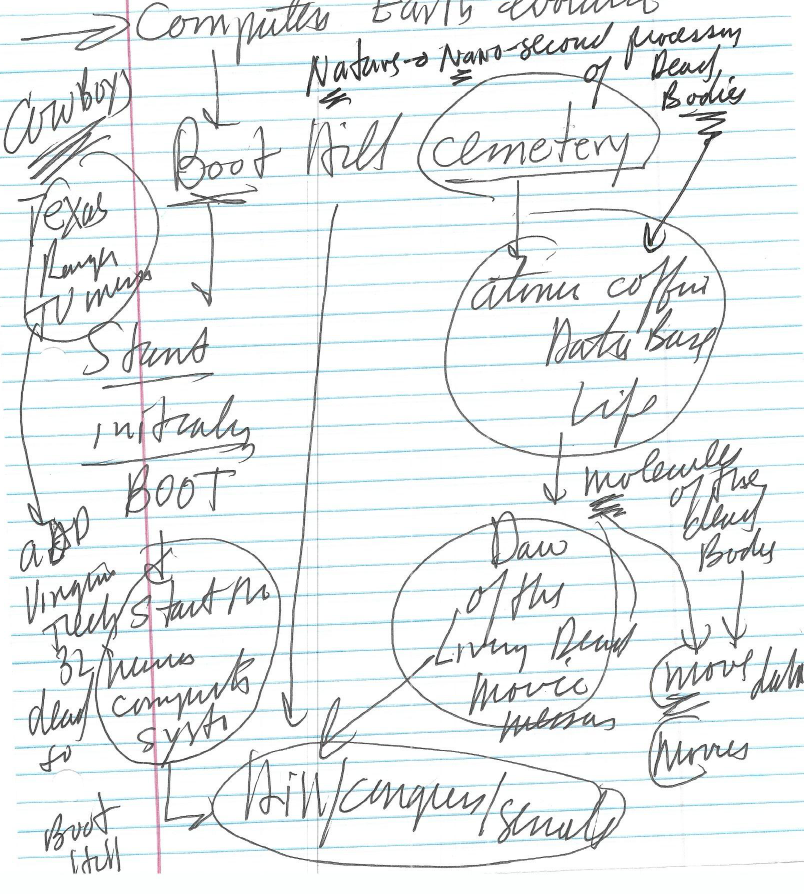 Computer Earth
Nature → Nano-second processing
of Dead
Bodies
Cowboys
Boot Hill cemetery
Texas
TV
atomic coffin
Data Base
Life
Start
initialy
BOOT
molecules
of the
dead
Bodies
Dawn
of the
Living Dead
movie
and
Virginia
Tech
32
dead
so
Start
computer
system
move data
movies
Hill/congress/senate
Boot
Hill